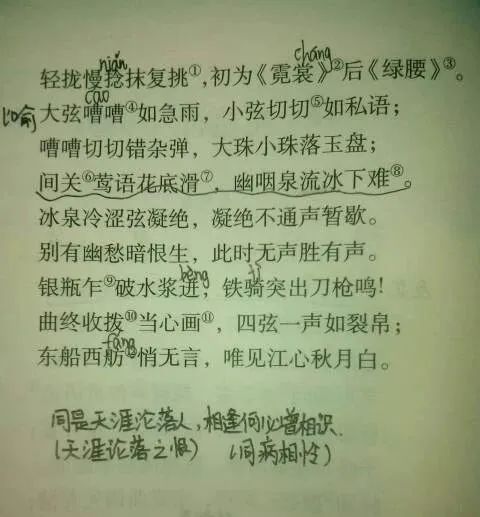 niǎn cháng
轻拢慢捻抹复挑①,初为《霓裳》②后《绿腰》③。
cáo
比喻 大弦嘈嘈④如急雨,小弦切切⑤如私语;
嘈嘈切切错杂弹,大珠小珠落玉盘;
间关⑥莺语花底滑⑦,幽咽泉流冰下难⑧。
冰泉冷涩弦凝绝,凝绝不通声暂歇。
别有幽愁暗恨生,此时无声胜有声。
bèng jì
银瓶乍⑨破水浆迸,铁骑突出刀枪鸣!
曲终收拨⑩当心画⑪,四弦一声如裂帛;
fǎng
东船西舫⑫悄无言,唯见江心秋月白。
同是天涯沦落人,相逢何必曾相识.
(天涯沦落之恨) (同病相怜)